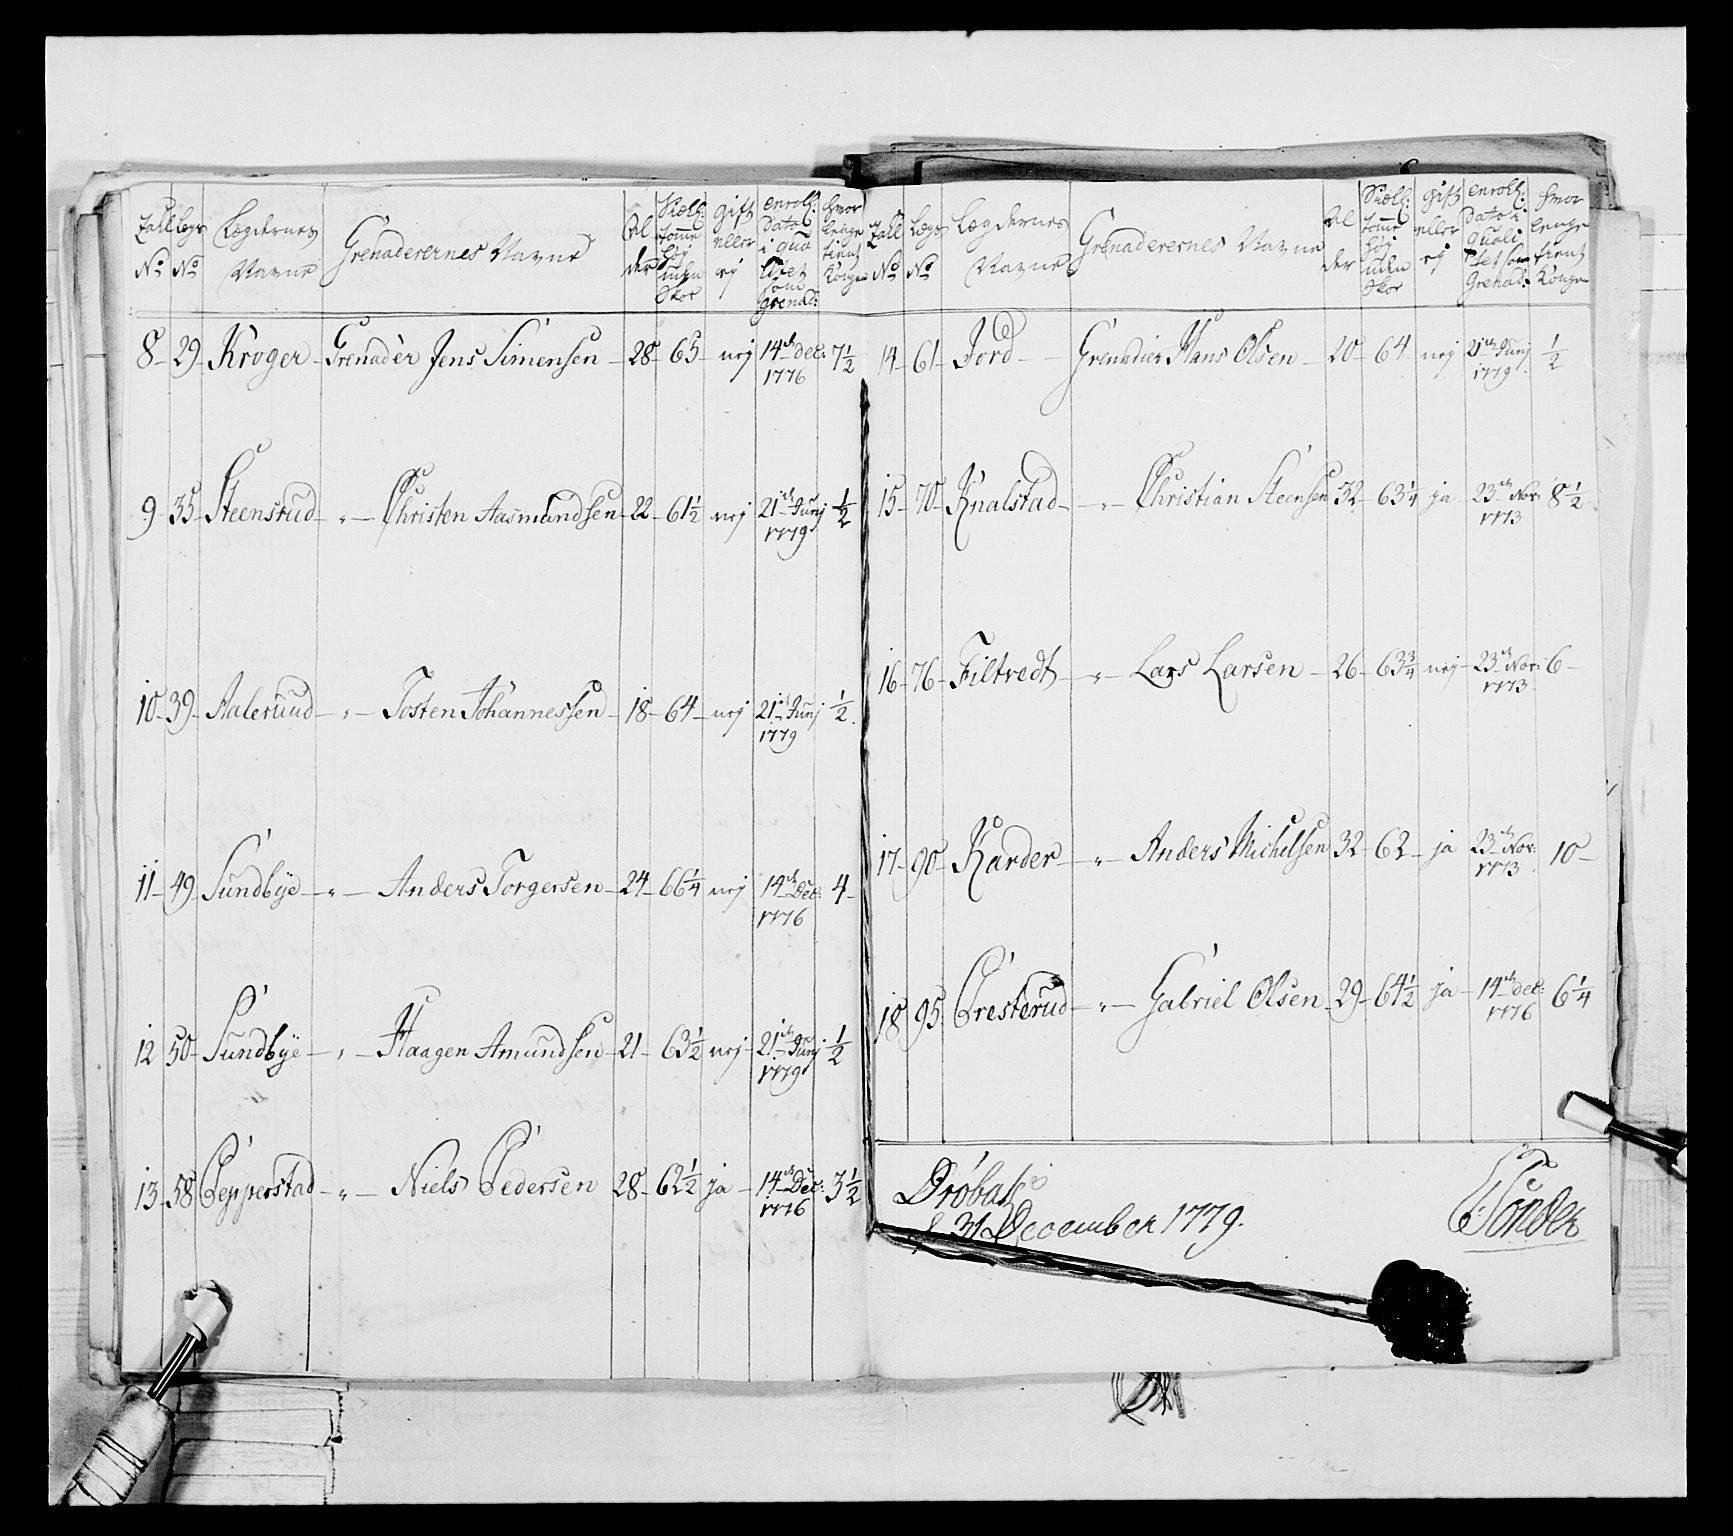 Tall No | Legs No | Lægdernes Navne | Grenaderernes Navne | Al der | Siæll: tomme høj uden Skoe | gift eller ej | enroll: dato i qua litet som Grenad: | hvor lenge tient Kongen
8 - 29 - Kroger - Grenadèr Jens Simensen - 28 - 65 - nej | 14de dec: 1776 | 7½
9 - 35 - Steensrud - „ - Christen Aasmundsen - 22 - 61½ - nej | 21de Junj 1779 | ½
10 - 39 - Aalerud - „ - Tosten Johannessen - 18 - 64 - nej | 21de Junj 1779 | ½
11 - 49 - Sundbye - „ - Anders Torgersen - 24 - 66¼ - nej | 14de Dec: 1776 | 4
12 - 50 - Sundbye - „ - Haagen Amundsen - 21 - 63½ - nej | 21de Junj 1779 | ½
13 - 58 - Pepperstad - „ - Niels Pedersen - 28 - 62½ - ja - 14de Dec: 1776 | 3½
Tall No | Legs No | Lægdernes Navne | Grenaderernes Navne | Al der | Siæll: tomme høj uden Skoe | gift eller ej | enroll: dato i Quali tet som Grenad: | hvor lenge tient Kongen
14 - 61 - Jord - Grenadier Hans Olsen - 20 - 64 - nej | 21de Junj 1779 | ½
15 - 70 - Knalstad - „ - Christian Steensen 32 - 63¼ - ja - 23de Nov: 1773 | 8½
16 - 76 - Filtvedt - „ - Lars Larsen - 26 - 63¾ - nej - 23de Nov: 1773 | 6
17 - 90 - Karder - „ - Anders Michelsen 32 - 62 - ja | 23de Nov: 1773 | 10
18 - 95 - Presterud - „ - Gabriel Olsen - 29 - 64½ - ja - 14de dec: 1776 | 6¼
Drøbak
d 31 December 1779.
Tønder